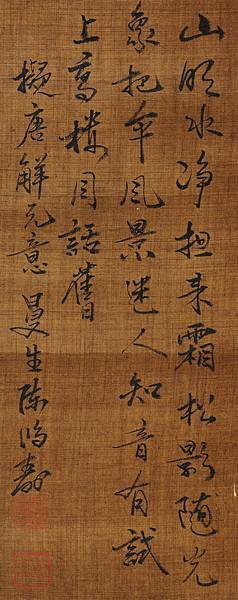 山明水净担来霜松影随光
象把伞风景迷人知音有試
上高楼同話舊
擬唐解元意曼生陈鸿寿